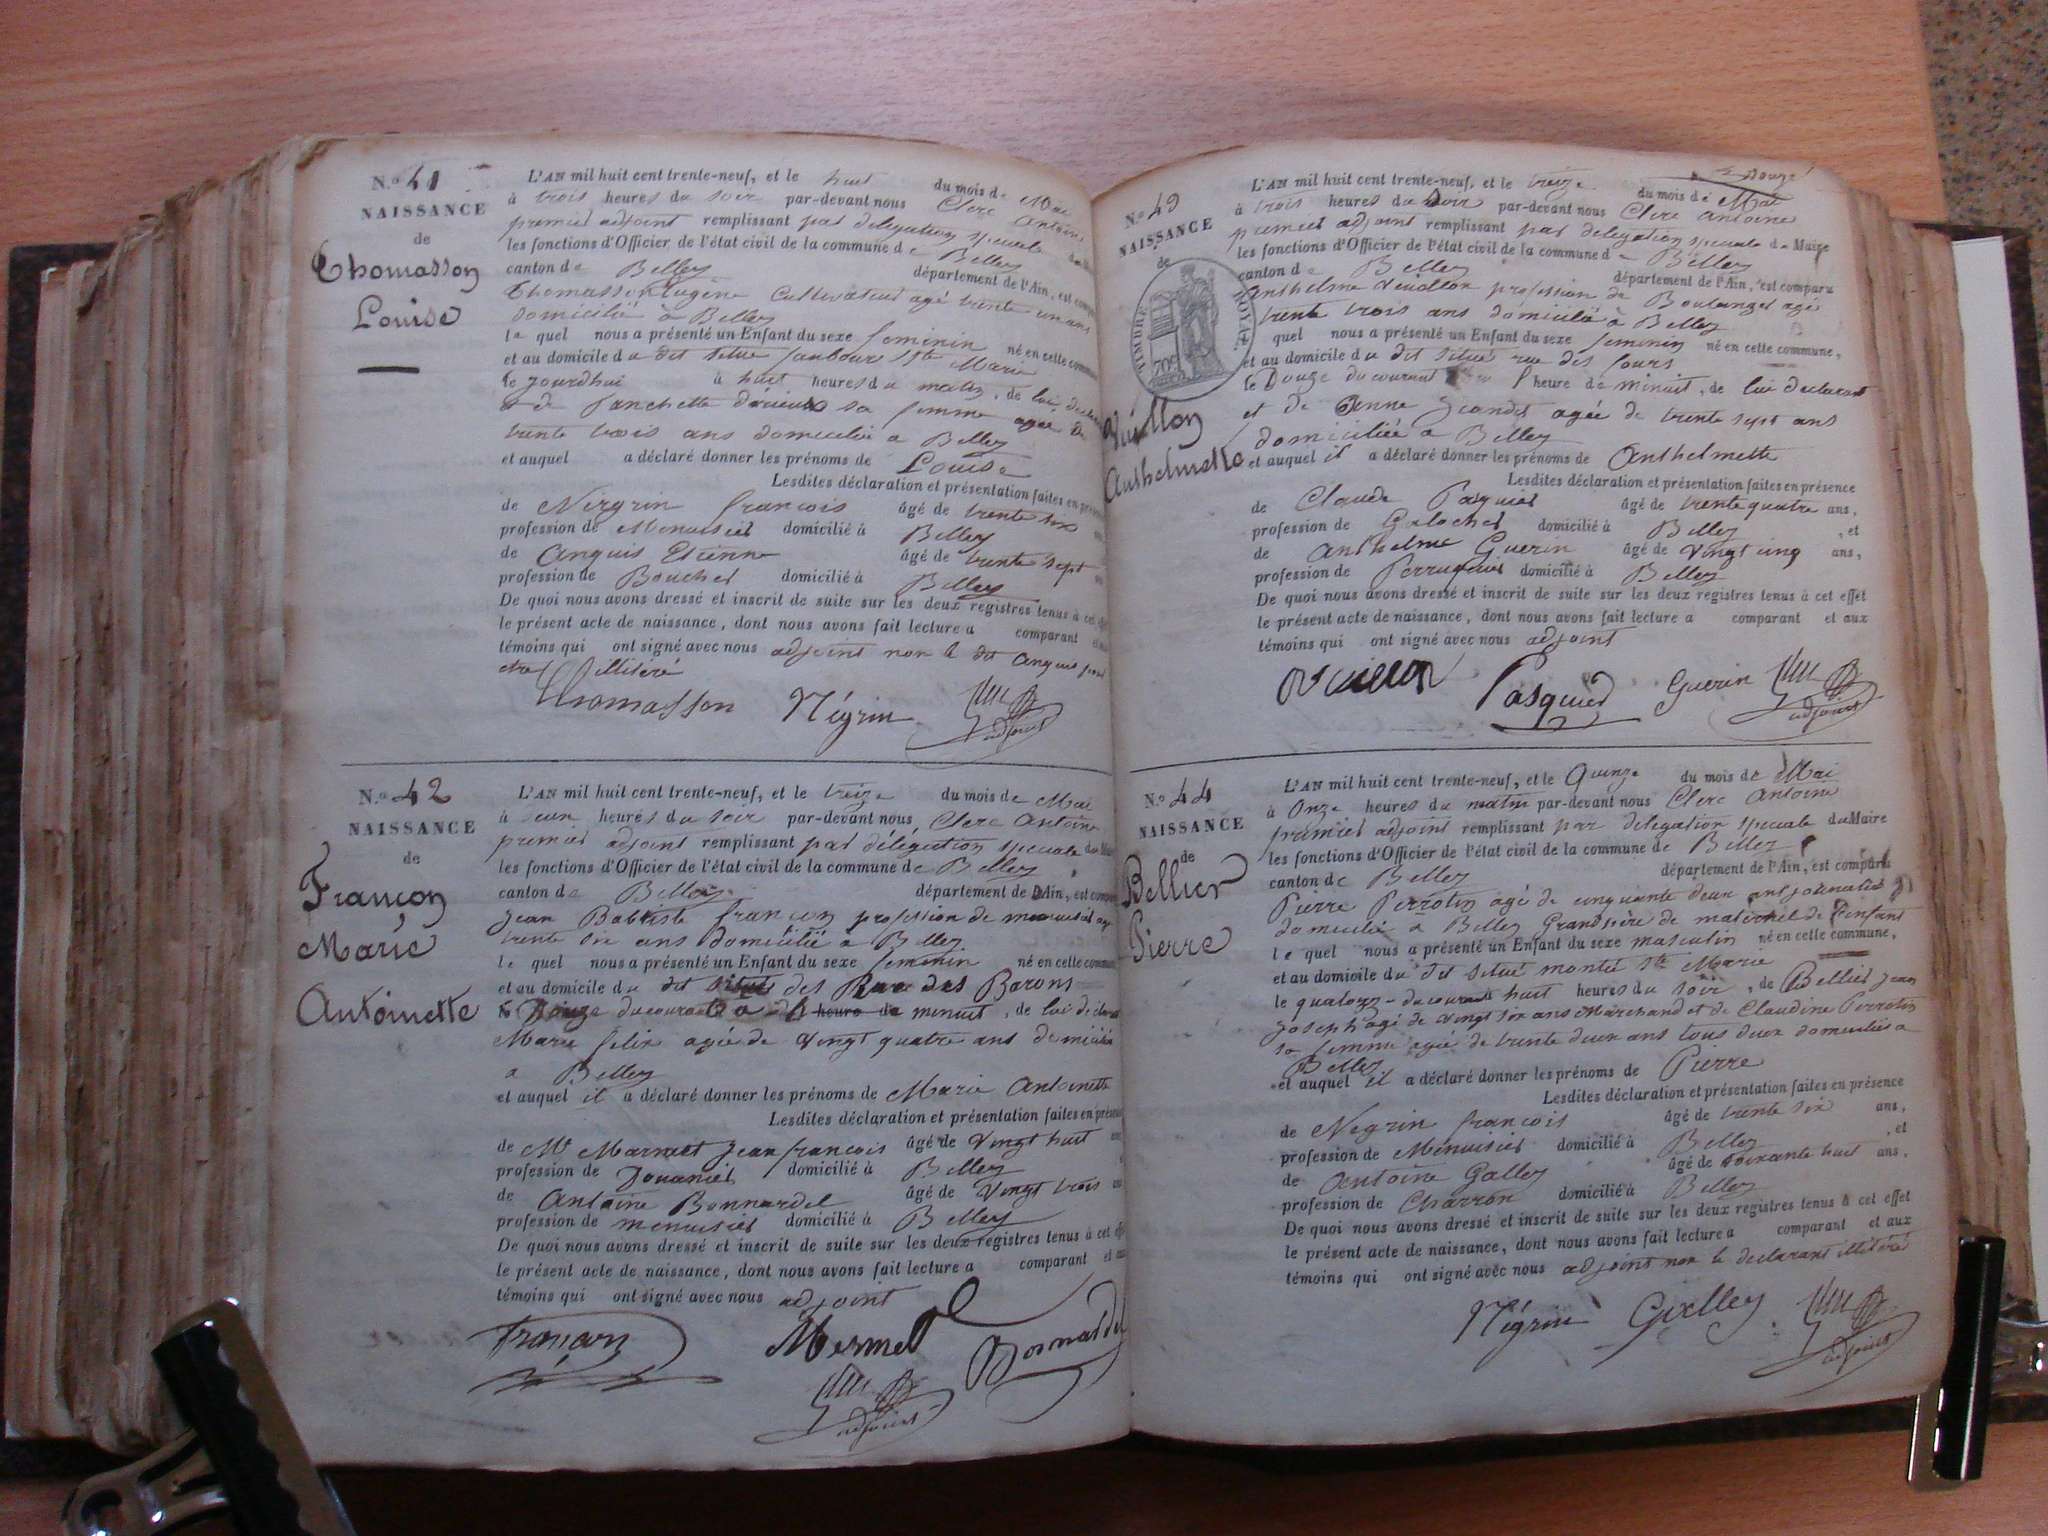 N.° 41
NAISSANCE
de
Thomasson
Louise
L'AN mil huit cent trente-neuf, et le huit du mois de Mai
à trois heures du soir par-devant nous Clerc Antoine
premier adjoint remplissant par délégation speciale
les fonctions d'Officier de l'état civil de la commune de Belley
canton de Belley département de l'Ain, est comparu
Thomasson Eugène Cultivateur agé trente un ans
domicilié à Belley
le quel nous a présenté un Enfant du sexe feminin né en cette commune
et au domicile du dit situé faubourg Ste Marie
le jourdhui à huit heures du matin, de lui declarant
et de sa femme agée de
trente trois ans domiciliée a Belley
et auquel a déclaré donner les prénoms de Louise
Lesdites déclaration et présentation faites en présence
de Negrin françois âgé de trente six
profession de Menuisier domicilié à Belley
de Anquis Etienne âgé de trente sept
profession de Boucher domicilié à Belley
De quoi nous avons dressé et inscrit de suite sur les deux registres tenus à cet effet
le présent acte de naissance, dont nous avons fait lecture a comparant et aux
témoins qui ont signé avec nous adjoint non le dit Anquis pour
etre illitéré
Thomasson Négrin Clerc adjoint
N.° 42
NAISSANCE
de
Françon
Marie
Antoinette
L'AN mil huit cent trente-neuf, et le treize du mois de Mai
à heures du soir par-devant nous Clerc Antoine
premier adjoint remplissant par délégation speciale du Maire
les fonctions d'Officier de l'état civil de la commune de Belley
canton de Belley département de l'Ain, est comparu
Jean Babtiste françon profession de menuisier agé
trente six ans domicilié a Belley
le quel nous a présenté un Enfant du sexe feminin né en cette commune
et au domicile du dit situé des Rue des Barons
le Douze du courant a heure de minuit, de lui declarant
Marie felix agée de vingt quatre ans domiciliée
a Belley
et auquel il a déclaré donner les prénoms de Marie Antoinette
Lesdites déclaration et présentation faites en présence
de Mr Jean françois âgé de vingt huit
profession de Douanier domicilié à Belley
de Antoine Bonnardel âgé de vingt trois
profession de menuisier domicilié à Belley
De quoi nous avons dressé et inscrit de suite sur les deux registres tenus à cet effet
le présent acte de naissance, dont nous avons fait lecture a comparant et aux
témoins qui ont signé avec nous adjoint
françon Mermet Bonnardel
Clerc adjoint
N.° 43
NAISSANCE
de
TIMBRE ROYAL
70c
Vuillon
Anthelmette
L'AN mil huit cent trente-neuf, et le treize du mois de Mai
à trois heures du soir par-devant nous Clerc Antoine
premier adjoint remplissant par delegation speciale du Maire
les fonctions d'Officier de l'état civil de la commune de Belley
canton de Belley département de l'Ain, est comparu
Anthelme Vuillon profession de Boulanger agé
trente trois ans domicilié à Belley
quel nous a présenté un Enfant du sexe feminin né en cette commune,
et au domicile du dit situé rue des fours
le Douze du courant heure de minuit, de lui declarant
et de Anne agée de trente sept ans
domiciliée a Belley
et auquel il a déclaré donner les prénoms de Anthelmette
Lesdites déclaration et présentation faites en présence
de Claude Pasquier âgé de trente quatre ans,
profession de Galocher domicilié à Belley, et
de Anthelme Guerin âgé de vingt cinq ans,
profession de Perruquier domicilié à Belley
De quoi nous avons dressé et inscrit de suite sur les deux registres tenus à cet effet
le présent acte de naissance, dont nous avons fait lecture a comparant et aux
témoins qui ont signé avec nous adjoint
Vuillon Pasquier Guerin Clerc adjoint
N.° 44
NAISSANCE
de
Bellier
Pierre
L'AN mil huit cent trente-neuf, et le Quinze du mois de Mai
à Onze heures du matin par-devant nous Clerc Antoine
premier adjoint remplissant par delegation speciale du Maire
les fonctions d'Officier de l'état civil de la commune de Belley
canton de Belley département de l'Ain, est comparu
Pierre Perrotin agé de cinquante deux ans journalier
domicilié a Belley Grand père de maternel de l'enfant
le quel nous a présenté un Enfant du sexe masculin né en cette commune,
et au domicile du dit situé montée Ste Marie
le quatorze du courant huit heures du soir, de Bellier Jean
Joseph agé de vingt six ans Marchand et de Claudine Perrotin
sa femme agée de trente deux ans tous deux domiciliés a
Belley
et auquel il a déclaré donner les prénoms de Pierre
Lesdites déclaration et présentation faites en présence
de Negrin françois âgé de trente six ans,
profession de Menuisier domicilié à Belley, et
de Antoine Galley âgé de soixante huit ans,
profession de Charron domicilié à Belley
De quoi nous avons dressé et inscrit de suite sur les deux registres tenus à cet effet
le présent acte de naissance, dont nous avons fait lecture a comparant et aux
témoins qui ont signé avec nous adjoint non le declarant illitéré
Négrin Galley Clerc adjoint